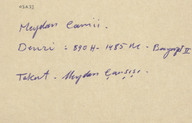 Meydan Camii.
Devri : 890 H - 1485 M. - Bayezıt II
Tokat - Meydan Çarşısı.